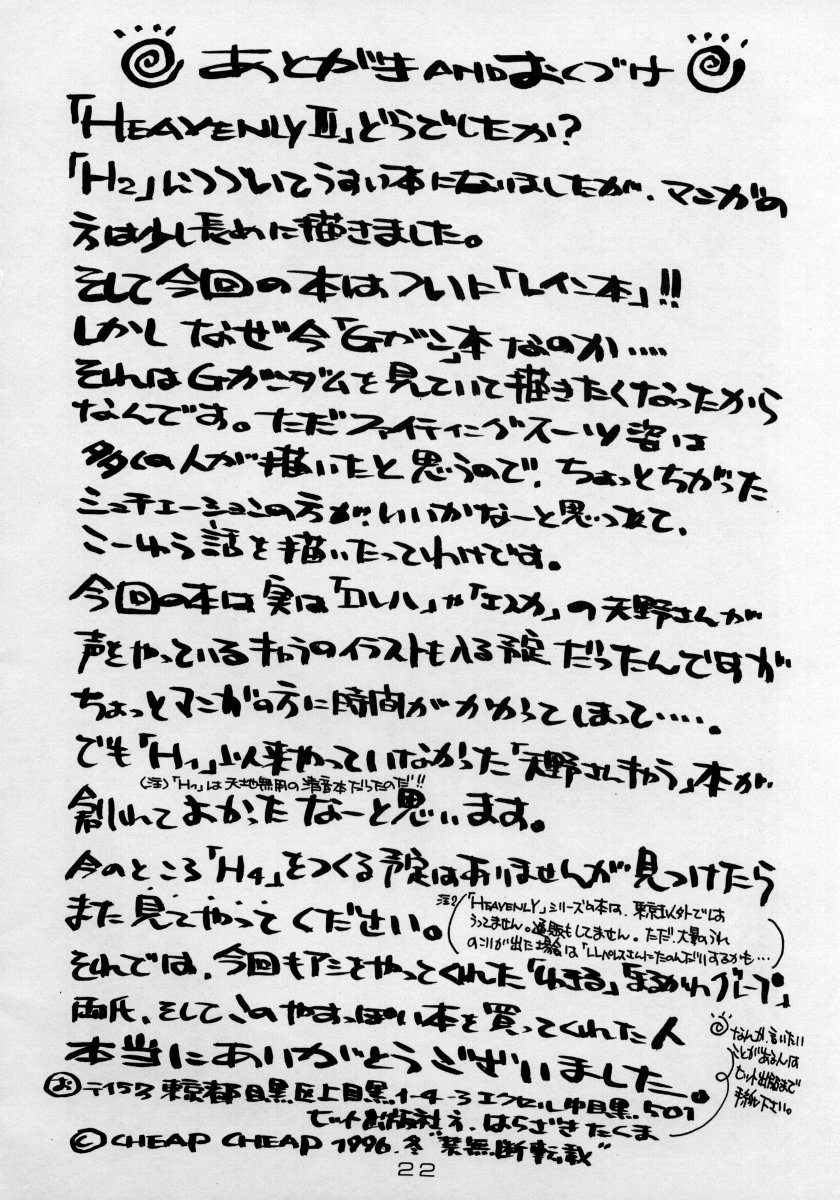 あとがきANDおくづけ
「HEAVENLY III」どうでしたか?
「H2」につづいてうすい本になりましたが、マンガの
方は少し長めに描きました。
そして今回の本はついに「レイン本」!!
しかしなぜ今「Gガン」本なのか‥‥
それはGガンダムを見ていて描きたくなったから
なんです。ただファイティングスーツ姿は
多くの人が描いたと思うので、ちょっとちがった
シュチェーションの方が、いいかなーと思って、
こーゆう話を描いたってわけです。
今回の本は実は「ロレル」や「エスカ」の天野さんが
声をやっているキャラのイラストも入る予定だったんですが
ちょっとマンガの方に時間がかかってしまって‥‥。
でも「H1」以来やっていなかった「天野さんキャラ」本が
(注)「H1」は天地無用の清音本だったのだ!!
創れてよかったなーと思います。
今のところ「H4」をつくる予定はありませんが見つけたら
また見てやってください。
注2「HEAVENLY」シリーズの本は、東京以外では
うってません。通販もしてません。ただ、大量のうれ
のこりが出た場合は「LLパレスさんにたのんだりするかも…
それでは、今回もアシをやってくれた「わきる」「まるかわグループ」
両氏、そしてこのやすっぽい本を買ってくれた人
本当にありがとうございました。
なんか、言いたい
ことがあるんは
ヒット出版まで
手紙下さい。
お 〒153 東京都目黒区上目黒1-4-3エクセル中目黒501
ヒット出版社方、はらざきたくま
© CHEAP CHEAP 1996.冬"禁無断転載"
22